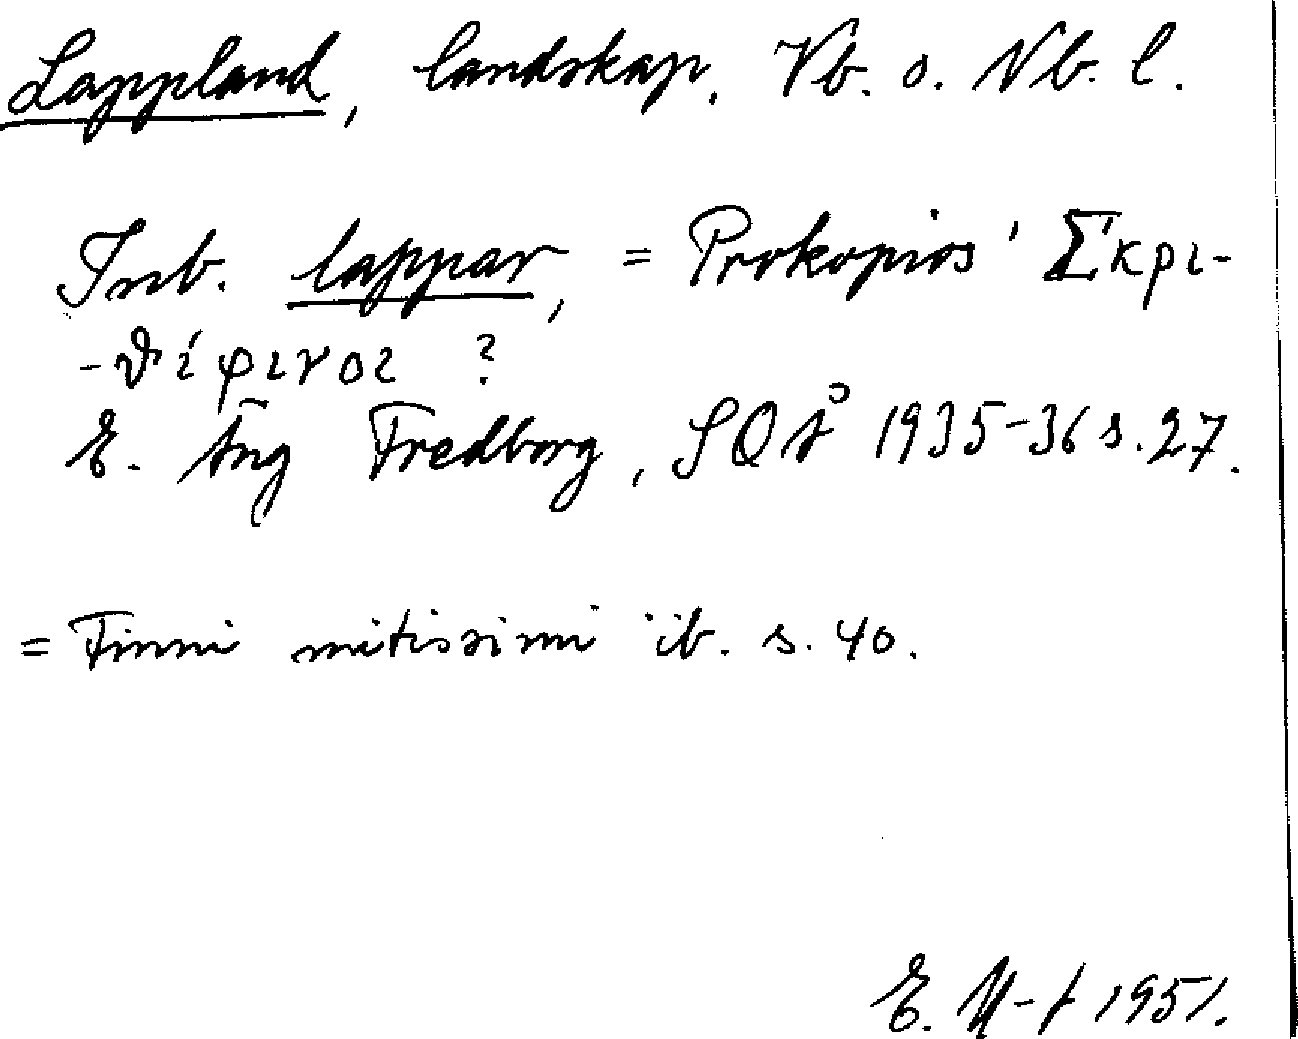 Lappland, landskap. Vb. o. Nb. l.
Inb. lappar, = Prokopios' Σκρι-
-θίφινοι ?
E. Äng Fredborg, SOÅ 1935-36 s. 27.
= Finni mitissimi ib. s. 40.
E. 1951.